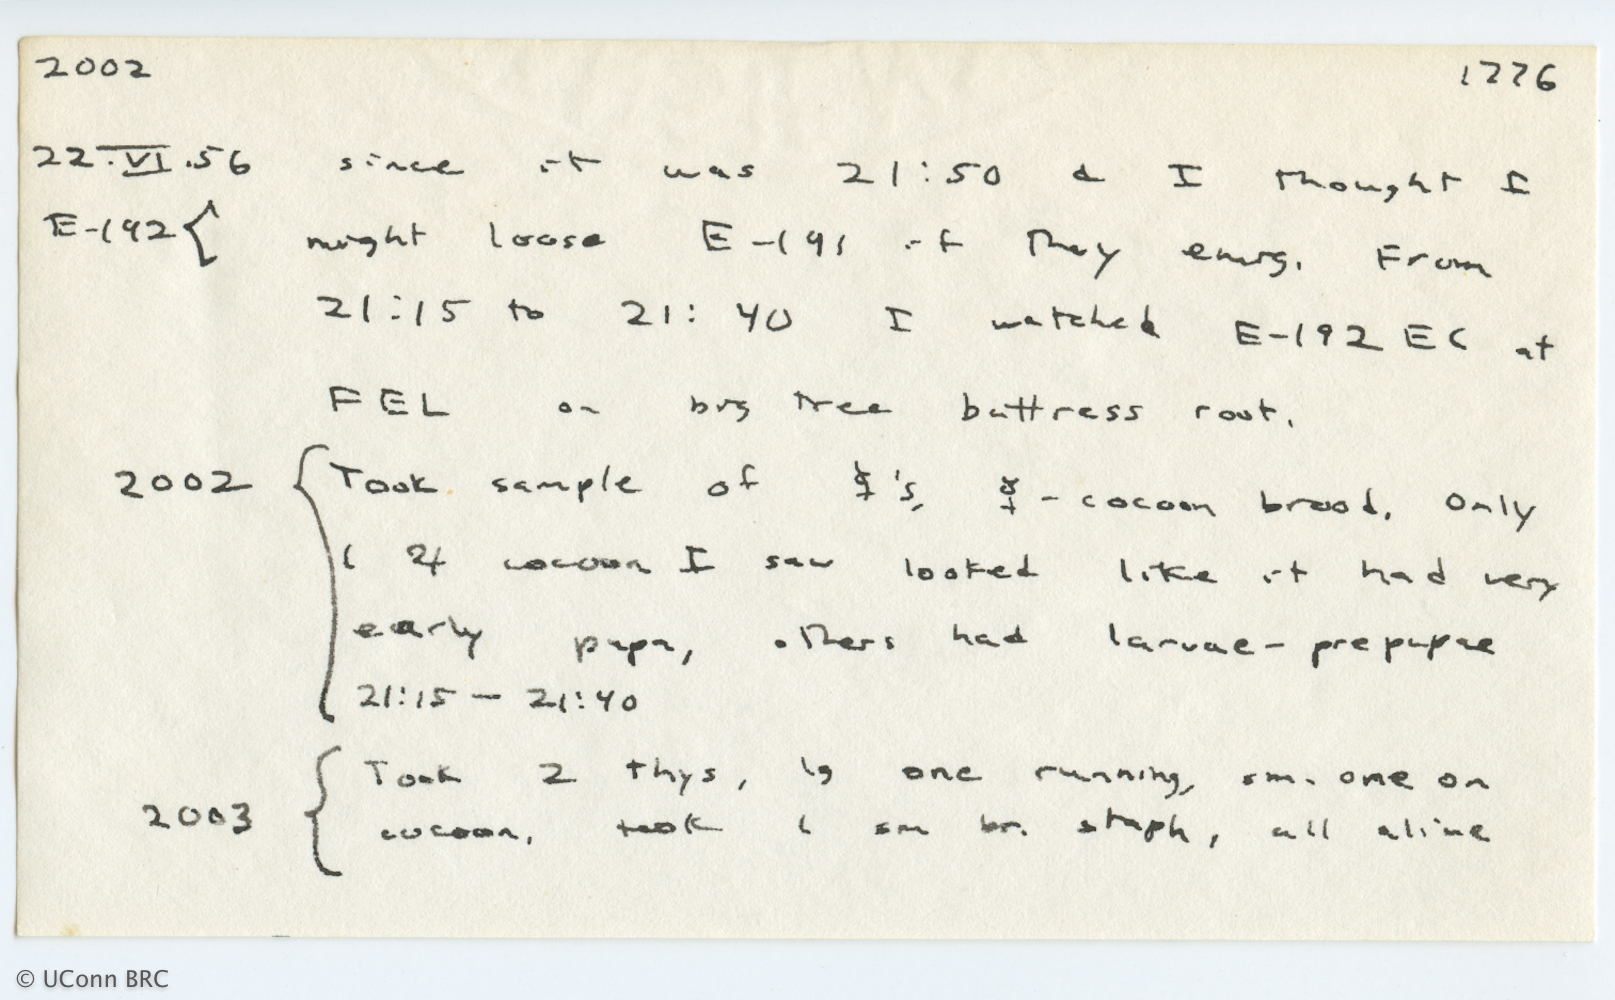 2002 1226
22.VI.56 since it was 21:50 & I thought I
E-192 { might loose E-191 if they emig. From
21:15 to 21:40 I watched E-192 EC at
FEL on big tree buttress root.
2002 { Took sample of ☿'s, ☿-cocoon brood. Only
1 ♃ cocoon I saw looked like it had very
early pupa, others had larvae-prepupae
21:15 - 21:40
2003 { Took 2 thys, lg one running, sm. one on
cocoon, took 1 sm br. staph, all alive
© UConn BRC